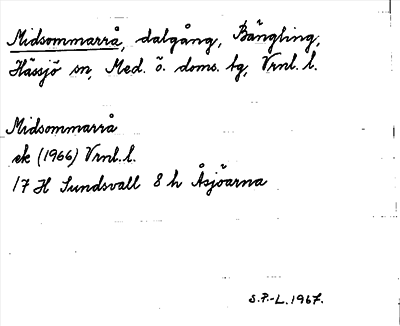 Midsommarrå, dalgång, Bängling,
Hässjö sn, Med. ö. doms. tg, Vrnl. l.
Midsommarrå
ek (1966) Vrnl. l.
17 H Sundsvall 8 h Åsjöarna
S.P.-L. 1967.